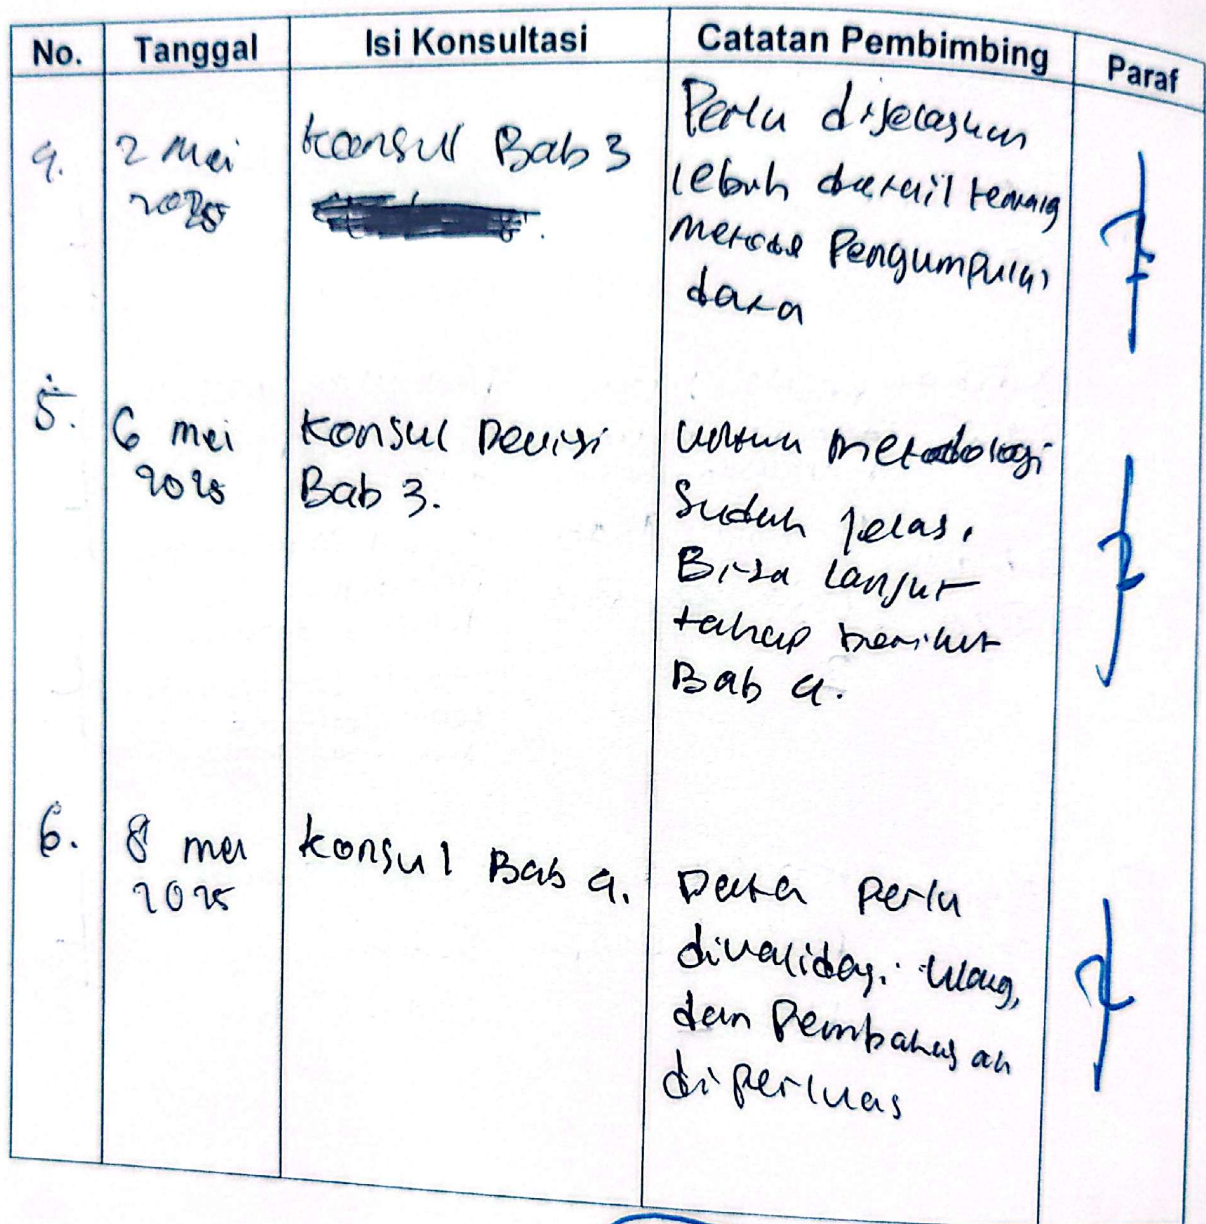 No. Tanggal Isi Konsultasi Catatan Pembimbing Paraf
4. 2 Mei 2025 Konsul Bab 3 Perlu dijelaskan
lebih detail tentang
metode Pengumpulan
data
5. 6 mei 2025 Konsul Revisi
Bab 3.
untuk metodologi
Sudah jelas.
Bisa lanjut
tahap berikut
Bab 4.
6. 8 mei 2025 Konsul Bab 4. Data Perlu
divalidasi Ulang,
dan Pembahasan
diperluas